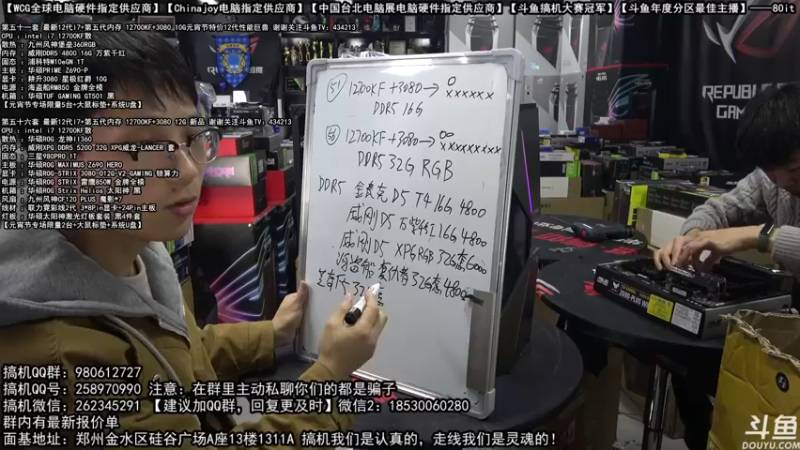 【WCG全球电脑硬件指定供应商】【Chinajoy电脑指定供应商】【中国台北电脑展电脑硬件指定供应商】【斗鱼搞机大赛冠军】【斗鱼年度分区最佳主播】——80it
第五十一套 最新12代i7+第五代内存 12700KF+3080 10G元宵节特价12代性能巨兽 谢谢关注斗鱼TV:434213
CPU : intel i7 12700KF散
散热 : 九州风神堡垒360RGB
内存 : 威刚DDR5 4800 16G 万紫千红
固态 : 浦科特M10eGN 1T
主板 : 华硕PRIME Z690-P
显卡 : 耕升3080 星极红爵 10G
电源 : 海盗船RM850 金牌全模
机箱 : 华硕TUF GAMING GT501 黑
【元宵节专场限量5台+大鼠标垫+系统U盘】
第五十六套 最新12代i7+第五代内存 12700KF+3080 12G 新品 谢谢关注斗鱼TV:434213
CPU : intel i7 12700KF散
散热 : 华硕ROG 龙神II360
内存 : 威刚XPG DDR5 5200 32G XPG威龙-LANCER 套
固态 : 三星980PRO 1T
主板 : 华硕ROG MAXIMUS Z690 HERO
显卡 : 华硕ROG STRIX 3080-O12G-V2-GAMING 锁算力
电源 : 华硕ROG STRIX 雷鹰850W 金牌全模
机箱 : 华硕ROG Strix Helios 太阳神 黑
风扇 : 九州风神CF120 PLUS 魔影*7
线材 : 联力霓彩线2代 3*8Pin显卡+24Pin主板
灯板 : 华硕太阳神激光灯板套装 黑4件套
【元宵节专场限量2台+大鼠标垫+系统U盘】
51 12700KF+3080→ xxxxxx
DDR5 16G
56 12700KF+3080→ xxxxxxx
DDR5 32G RGB
DDR5 金麦克 D5 T4 16G 4800
威刚 D5 万紫千红 16G 4800
威刚 D5 XPG RGB 32G套 6000
海盗船 复仇者 32G套 4800
芝奇
REPUBLIC
GAM
搞机QQ群: 980612727
搞机QQ号: 258970990 注意: 在群里主动私聊你们的都是骗子
搞机微信: 262345291 【建议加QQ群, 回复更及时】微信2: 18530060280
群内有最新报价单
面基地址: 郑州金水区硅谷广场A座13楼1311A 搞机我们是认真的, 走线我们是灵魂的!
斗鱼
DOUYU.COM